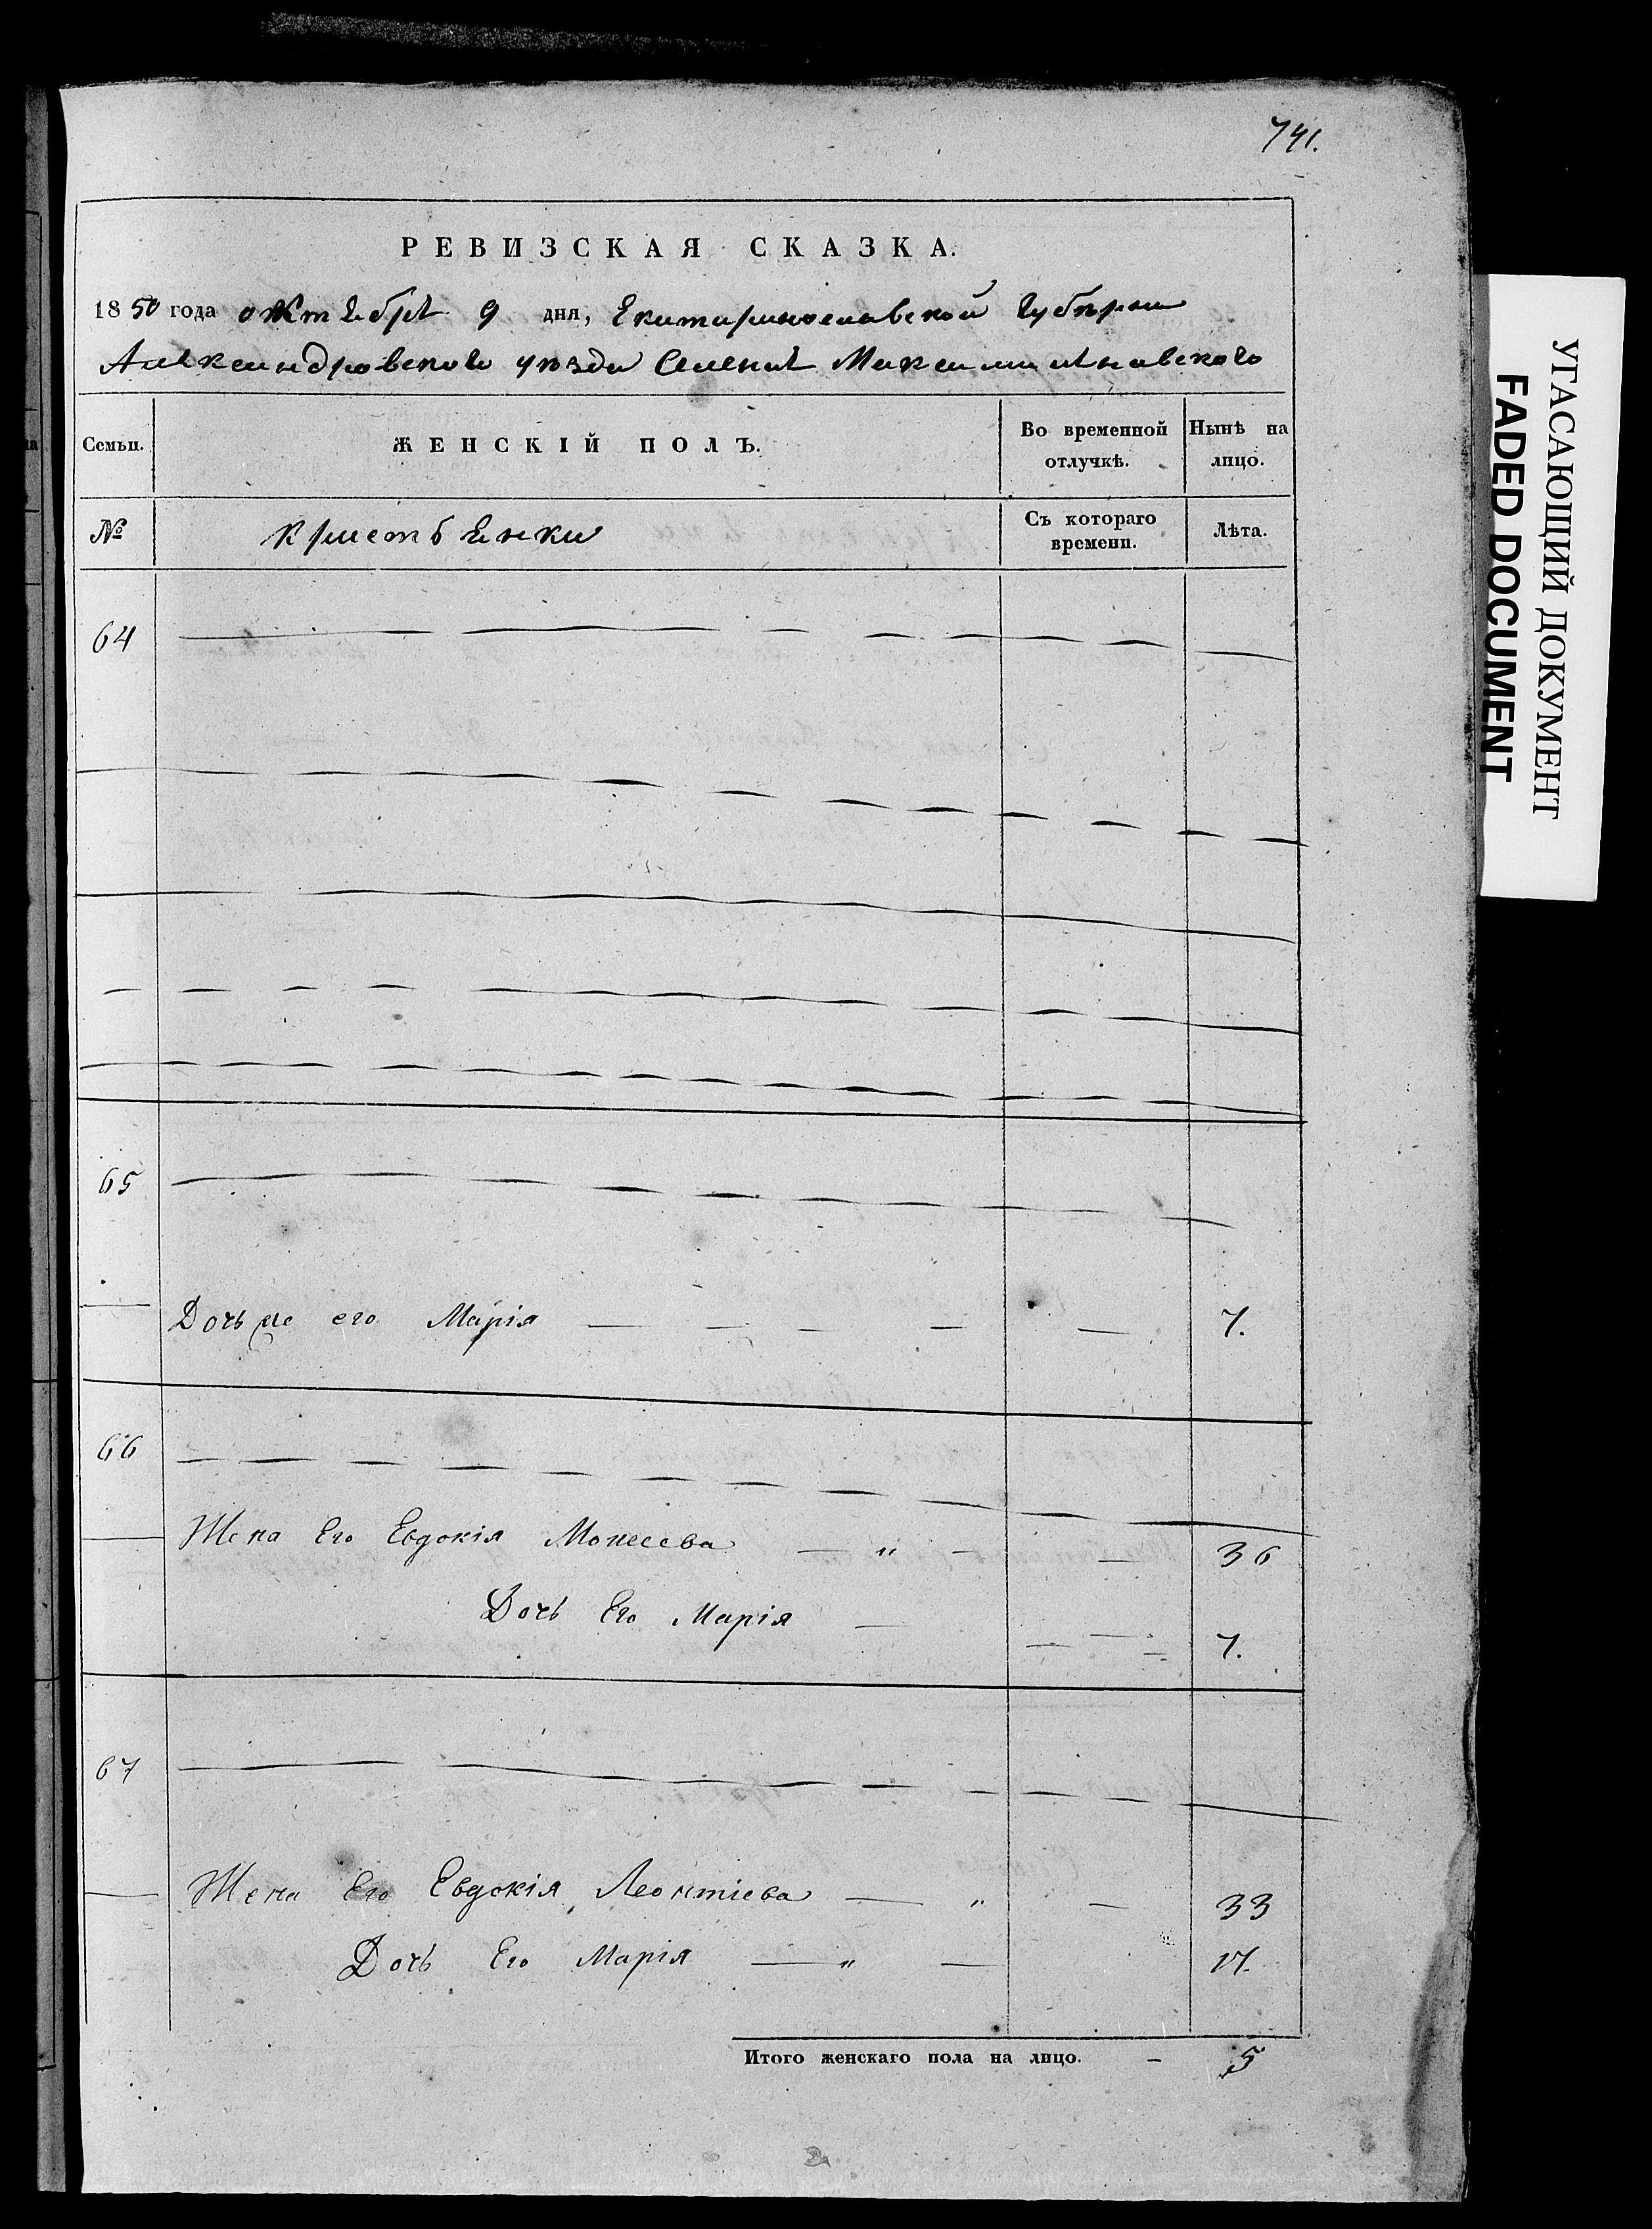 741.
РЕВИЗСКАЯ СКАЗКА.
1850 года октября 9 дня, Екатеринославской губерніи
Александровского уезда Селенія Максимиляновского
Семьи.
ЖЕНСКІЙ ПОЛЪ.
Во временной отлучкѣ.
Нынѣ на лицо.
№
крестьянки
Съ котораго времени.
Лѣта.
64
65
его Марія 7.
66
Жена Его Евдокія Моисеева — " — 36
Дочь Его Марія — 7.
67
Жена Его Евдокія Леонтіева — " — 33
Дочь Его Марія — " — 17.
Итого женскаго пола на лицо. — 5
УГАСАЮЩИЙ ДОКУМЕНТ
FADED DOCUMENT